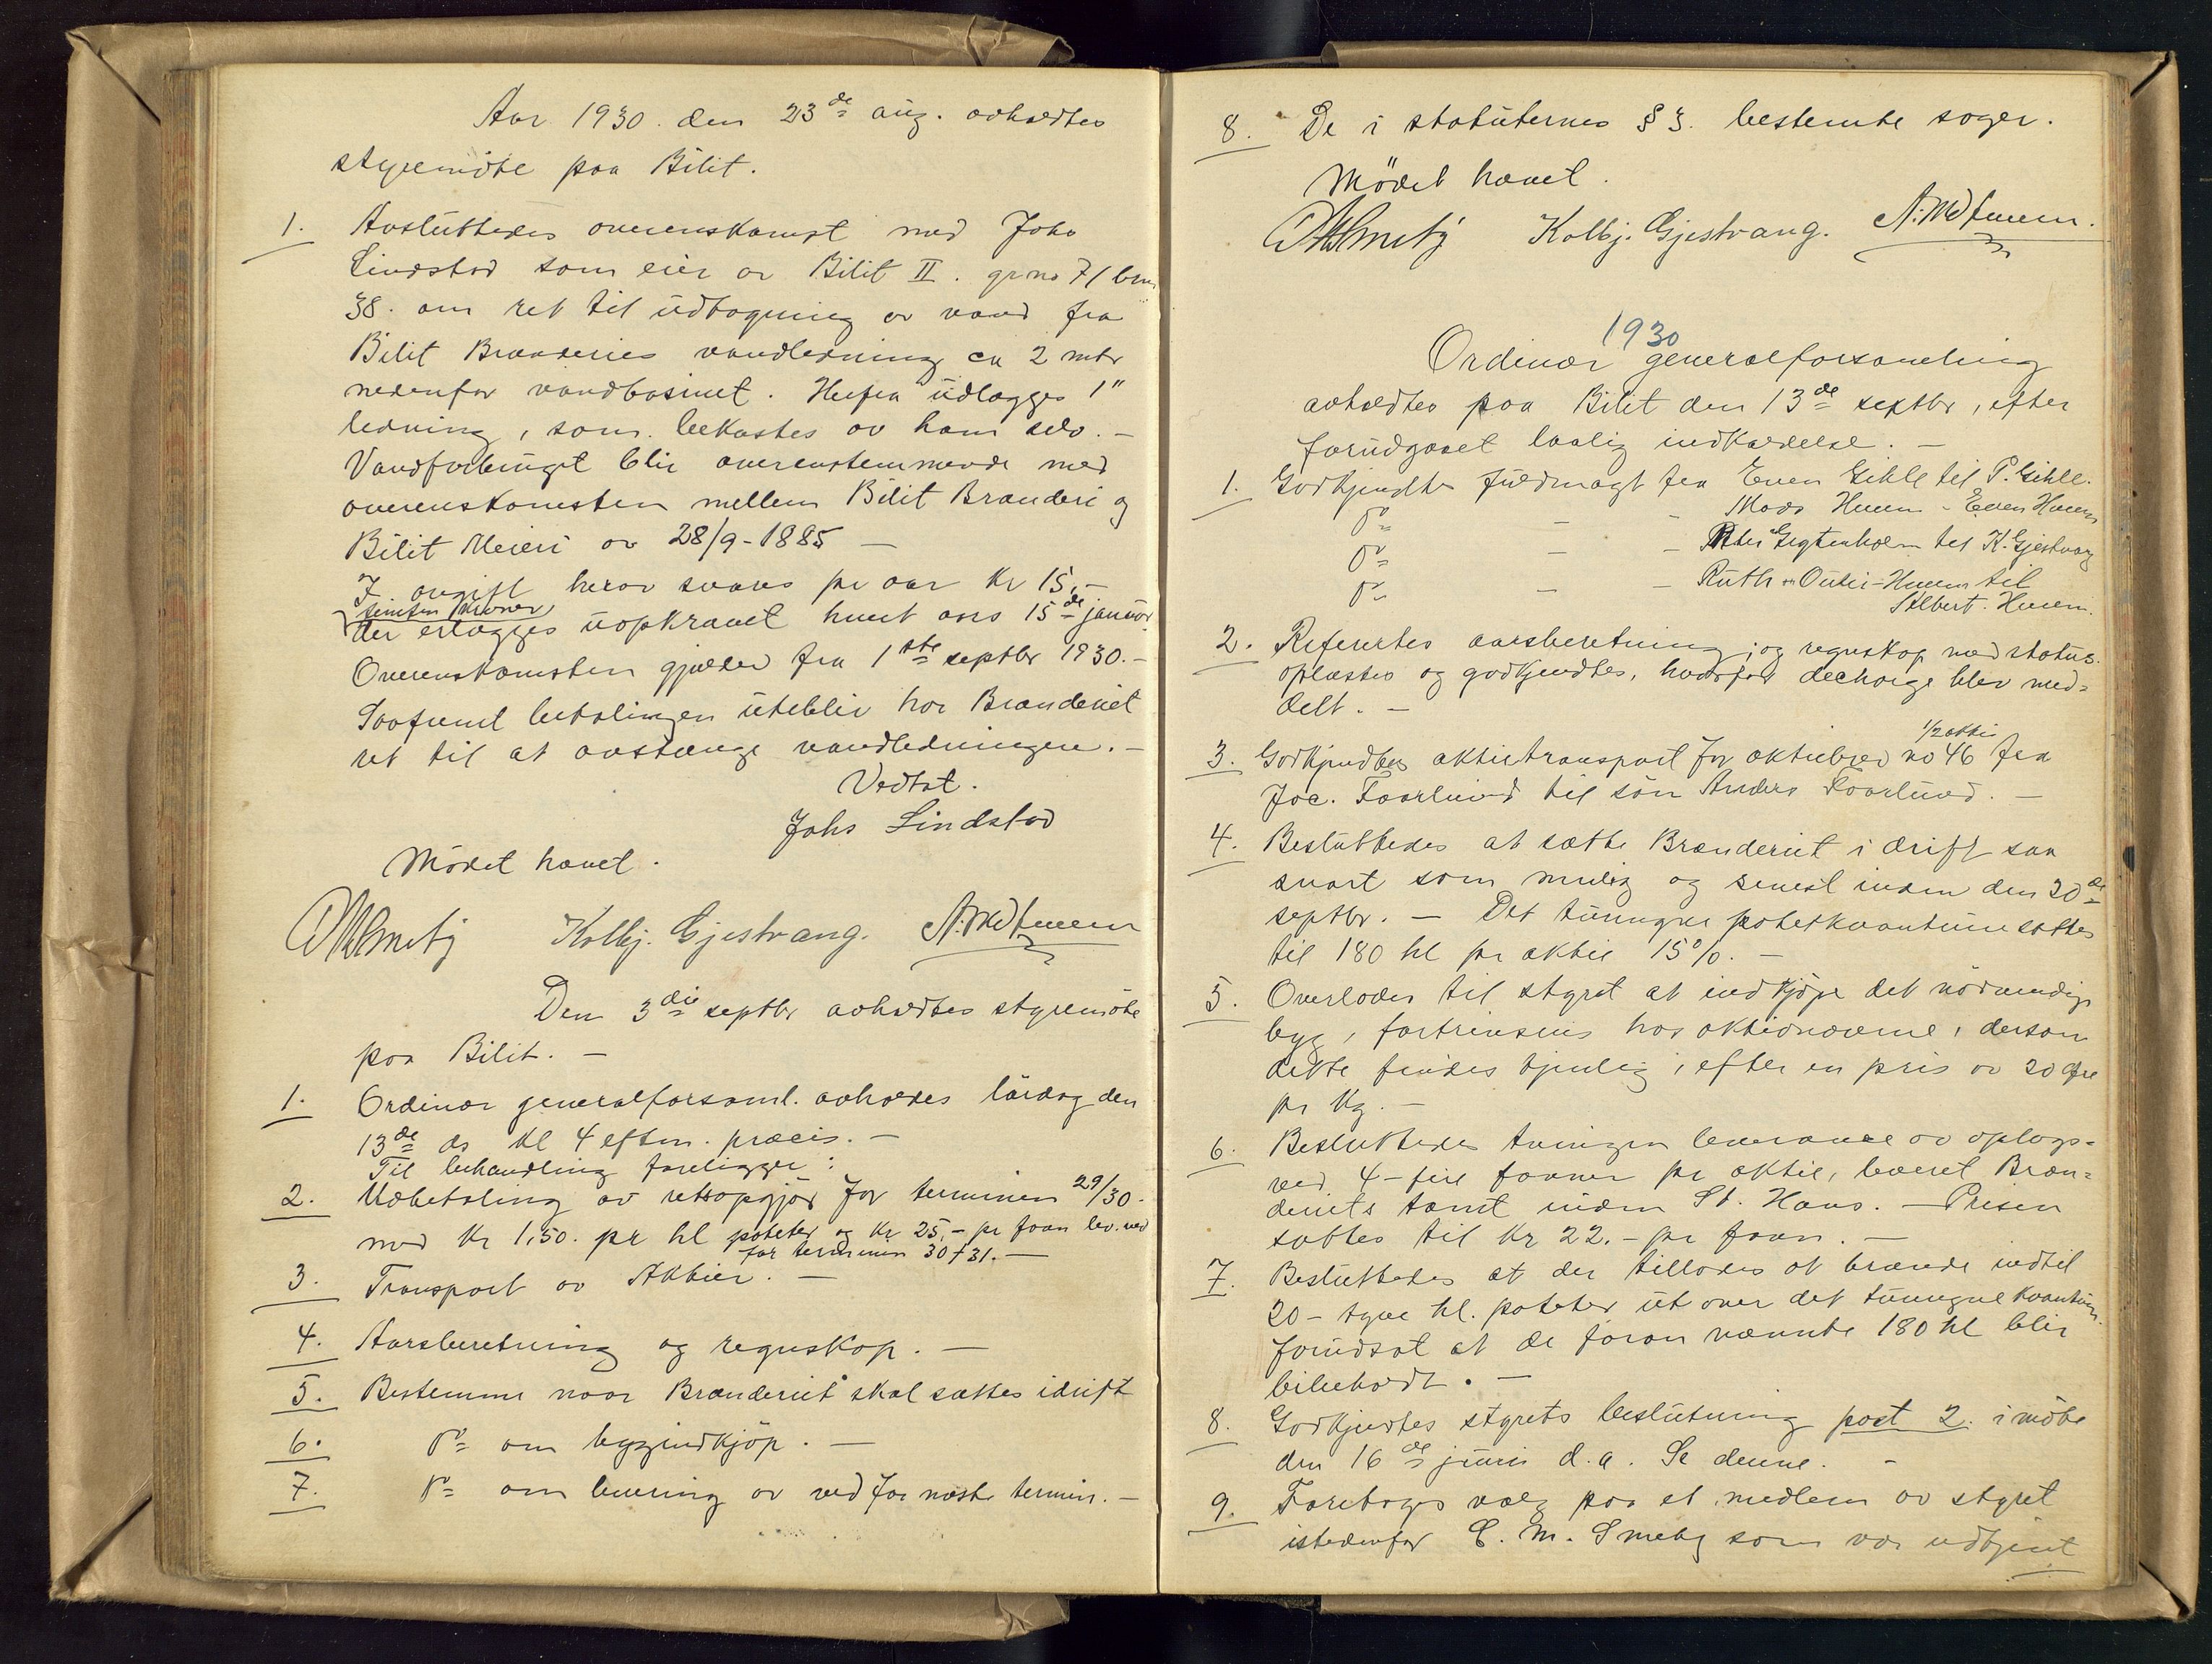 Aar 1930. den 23de aug. avholdtes
styremöte paa Bilit.
1. Avsluttedes overenskomst med Johs
Lindstad som eier av Bilit II. grno 71 brn
38. om ret til udtagning av vand fra
Bilit Brænderies vandledning ca 2 mtr
nedenfor vandbasinet. Herfra udlægges 1"
ledning, som bekostes av ham selv. —
Vandforbruget blir overenstemmende med
overenskomsten mellem Bilit Brænderi og
Bilit Meieri av 28/9-1885 —
I avgift herav svares pr aar kr 15,-
femten kroner
der erlægges uopkrævet hvert aars 15de januar
Overenskomsten gjælder fra 1ste septbr 1930. —
Saafremt betalingen utebliv har Brænderiet
ret til at avstænge vandledningen. —
Vedtat.
Johs Lindstad
Mödet hævet.
Kolbj. Gjestvang.
Den 3die septbr avholdtes styremöte
paa Bilit. —
1. Ordinær generalforsaml. avholdes lördag den
13de ds kl 4 eftm. præcis. —
Til behandling foreligger:
2. Udbetaling av restopgjör for terminen 29/30.
med kr 1,50. pr hl poteter og kr 25,- pr favn lev. ved
for terminen 30+31. —
3. Transport av Aktier. —
4. Aarsberetning og regnskap. —
5. Bestemme naar Brænderiet skal sættes idrift
6. Do om bygindkjöp. —
7. Do om levering av ved for næste termin. —
8. De i statuternes § 3. bestemte sager.
Mödet hævet.
Kolbj. Gjestvang.
1930
Ordinær generalforsamling
avholdtes paa Bilit den 13de septbr, efter
forudgaaet lovlig indkaldelse. —
1. Godkjendtes fuldmagt fra Even Gihle til P. Gihle.
Do — - Mads Huem - Even Huem
Do — — Peter Gegtenholm til K. Gjestvang
Do — — Ruth Huem til
Albert Huem.
2. Refertes aarsberetning; og regnskap med status.
oplæstes og godkjendtes, hvorfor decharge blev med-
delt. —
1/2 aktie
3. Godkjendtes aktietransport for aktiebrev no 46 fra
Joc. Faarlund til sön Anders Faarlund. —
4. Besluttedes at sætte Brænderiet i drift saa
snart som mulig og senest inden den 20de
septbr. — Det tvungne potetkvantum sættes
til 180 hl pr aktie 15%. —
5. Overlodes til styret at indkjöpe det nödvendige
byg, fortrinsvis hos aktionærerne, dersom
dette findes tjenlig, efter en pris av 20 øre
pr kg. —
6. Besluttedes tvungen leverance av oplags-
ved 4 - fire favner pr aktie, leveret Bræn-
deriets tomt inden St. Hans. — Prisen
sættes til kr 22.- pr favn. —
7. Besluttedes at der tillades at brænde indtil
20 - tyve hl. poteter ut over det tvungne kvantum.
forudsat at de foran nævnte 180 hl blir
bibeholdt. —
8. Godkjendtes styrets beslutning post 2. i möte
den 16de juni d.a. Se denne. —
9. Foretages valg paa et medlem av styret
istedenfor E. M. Smeby som var udtjent